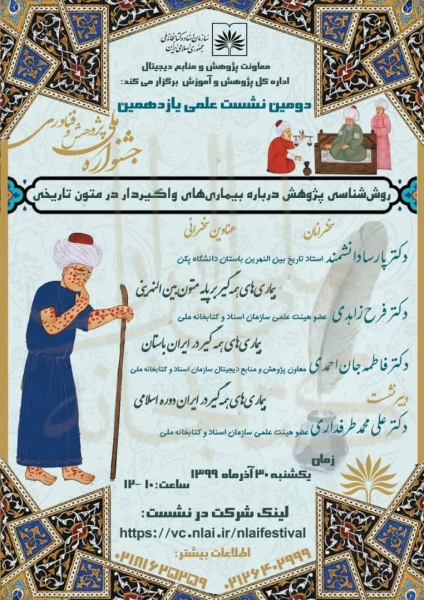 سازمان اسناد و کتابخانه ملی
جمهوری اسلامی ایران
معاونت پژوهش و منابع دیجیتال
اداره کل پژوهش و آموزش برگزار می کند:
دومین نشست علمی یازدهمین
جشنواره ملی پژوهش و فناوری
روش‌شناسی پژوهش درباره بیماری‌های واگیردار در متون تاریخی
سخنرانان
عناوین سخنرانی
دکتر پارسا دانشمند استاد تاریخ بین النهرین باستان دانشگاه پکن
بیماری‌های همه گیر بر پایه متون بین النهرینی
دکتر فرح زاهدی عضو هیئت علمی سازمان اسناد و کتابخانه ملی
بیماری‌های همه گیر در ایران باستان
دکتر فاطمه جان احمدی معاون پژوهش و منابع دیجیتال سازمان اسناد و کتابخانه ملی
بیماری‌های همه گیر در ایران دوره اسلامی
دبیر نشست
دکتر علی محمد طرفداری عضو هیئت علمی سازمان اسناد و کتابخانه ملی
زمان
یکشنبه ۳۰ آذر ماه ۱۳۹۹ ساعت: ۱۰-۱۲
لینک شرکت در نشست:
https://vc.nlai.ir/nlaifestival
اطلاعات بیشتر:
۰۲۱۸۱۶۲۵۲۵۹
۰۲۱۲۶۴۰۲۹۹۹